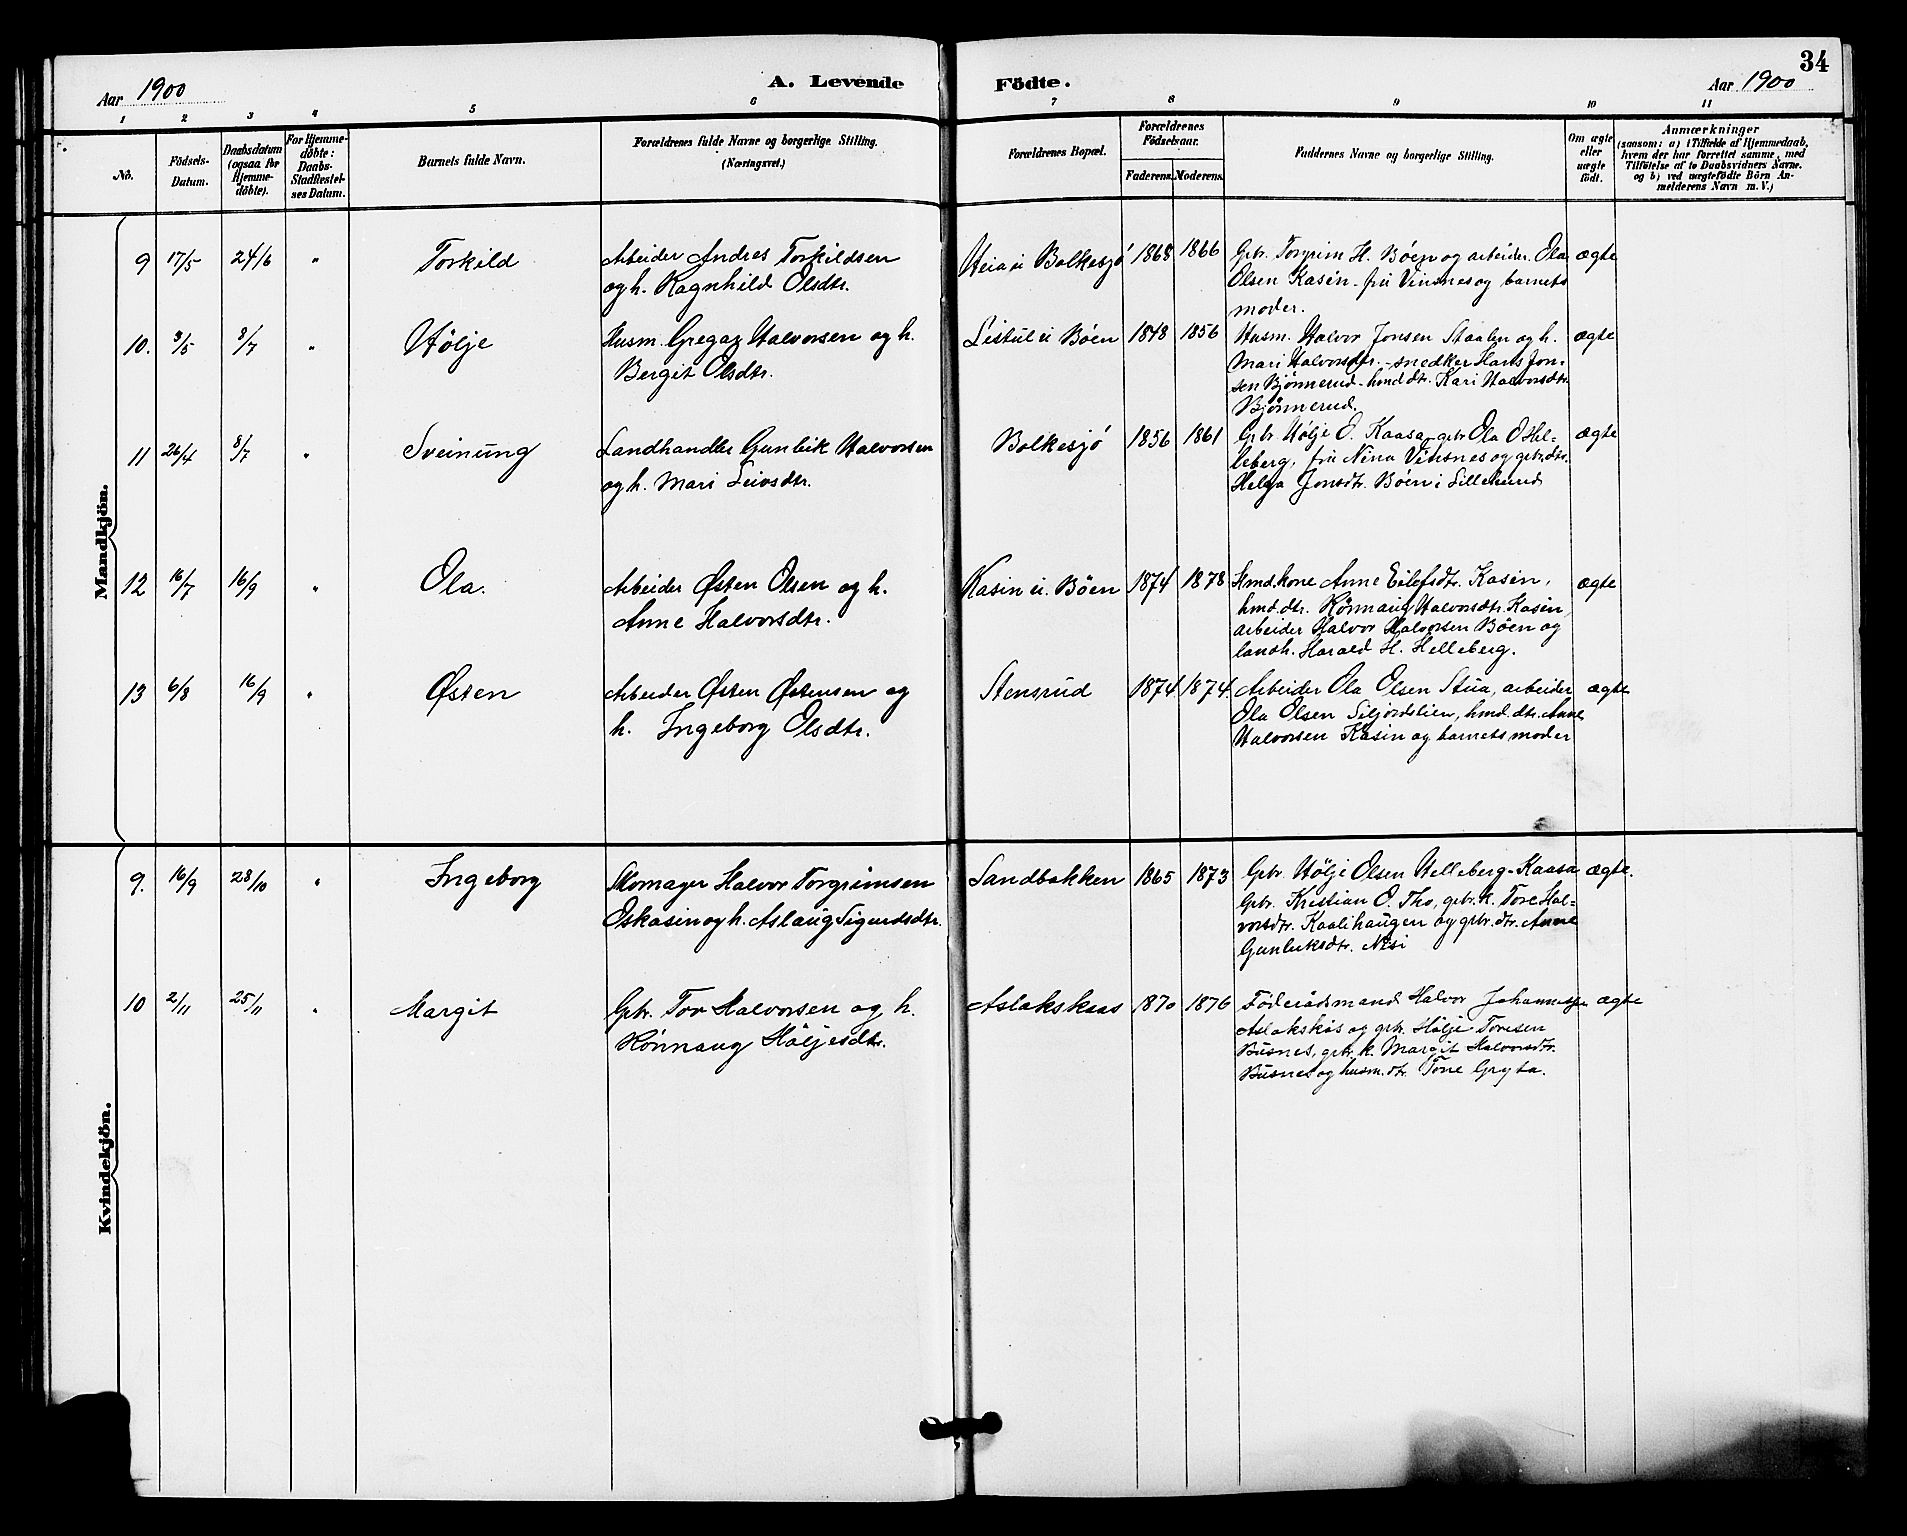 34
Aar 1900
A. Levende Födte.
Aar 1900
1 2 3 4 5 6 7 8 9 10 11
No.
Födsels-
Datum.
Daabsdatum
(ogsaa for
Hjemme-
döbte).
For Hjemme-
döbte:
Daabs-
Stadfæstel-
ses Datum.
Barnets fulde Navn.
Forældrenes fulde Navne og borgerlige Stilling.
(Næringsvei.)
Forældrenes Bopæl.
Forældrenes
Födselsaar.
Faderens. Moderens.
Faddernes Navne og borgerlige Stilling.
Om ægte
eller
uægte
födt.
Anmærkninger
(saasom: a) i Tilfælde af Hjemmedaab,
hvem der har forrettet samme, med
Tilföielse af to Daabsvidners Navne.
og b) ved uægtefödte Börn An-
melderens Navn m. V.)
Mandkjön.
9 17/5 24/6 " Torkild
Arbeider Andres Torkildsen
og h. Ragnhild Olsdtr.
Heia u Bolkesjø 1868 1866
Gbr. Torgrim H. Bøen og arbeider Ola
Olsen Kasin - frü Vinsnes og barnets
moder.
ægte
10. 3/5 8/7 " Hølje
Husm. Gregar Halvorsen og h.
Bergit Olsdtr.
Listul u Bøen 1848 1856
Husm. Halvor Jonsen Staalen og h.
Mari Halvorsdtr. - snedker Hans Jon-
sen Bjønnerud - hmd dtr. Kari Halvorsdtr.
Bjønnerud.
ægte
11 26/4 8/7 " Sveinung
Landhandler Gunleik Halvorsen
og h. Mari Leivsdtr.
Bolkesjø 1856 1861
Gbr. Hølje O. Kaasa - gbr Ola O Hel-
leberg, frü Nina Vinsnes og gbr. dtr.
Helga Jonsdtr. Bøen i Lillehered
ægte
12 16/7 16/9 " Ola.
Arbeider Østen Olsen og h.
Anne Halvorsdtr.
Kasin u. Bøen 1874 1878
Hmd. kone Anne Eilefsdtr. Kasin,
hmd. dtr. Rønnaug Halvorsdtr. Kasin,
arbeider Halvor Halvorsen Bøen og
landh. Harald H. Helleberg.
ægte
13 6/8 16/9 " Østen
Arbeider Østen Østensen og
h. Ingeborg Olsdtr.
Stensrud 1874 1874.
Arbeider Ola Olsen Stua, arbeider
Ola Olsen Siljordslien, hmd. dtr. Anne
Halvorsen Kasin og barnets moder
ægte
Kvindekjön.
9. 16/9 28/10 " Ingeborg
Skomager Halvor Torgrimsen
Oskasin og h. Aslaug Sigurdsdtr.
Sandbakken 1865 1873
Gbr. Hølje Olsen Helleberg - Kaasa
Gbr. Kristian O. Tho, gbr. k. Tore Hal-
vorsdtr. Kaalihaugen og gbr. dtr. Anne
Gunleiksdtr. Nisi
ægte.
10 2/11 25/11 " Margit
Gbr. Tov Halvorsen og h.
Rønnaug Høljesdtr.
Aslakskaas 1870 1876
Føderaadsmand Halvor Johannessen
Aslakskås og gbr. Hølje Toresen
Busnes, gbr. k. Margit Halvorsdtr.
Busnes og husm. dtr. Tone Gryta.
ægte